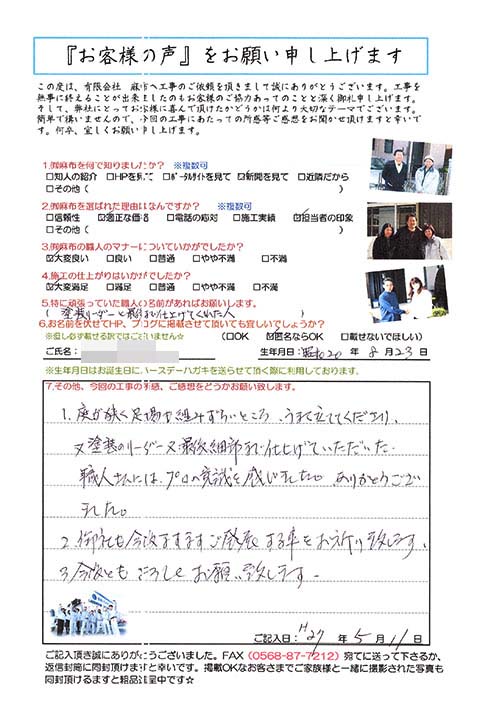 『お客様の声』をお願い申し上げます
この度は、有限会社 麻布へ工事のご依頼を頂きまして誠にありがとうございます。工事を
無事に終えることが出来ましたのもお客様のご協力あってのことと深く御礼申し上げます。
そして、弊社にとってお客様に喜んで頂けたかどうかは何より大切なテーマでございます。
簡単で構いませんので、今回の工事にあたっての所感等ご感想をお聞かせ頂けますと幸いで
す。何卒、宜しくお願い申し上げます。
1.㈲麻布を何で知りましたか？ ※複数可
□知人の紹介 □HPを見て □ポータルサイトを見て ☑新聞を見て □近隣だから
□その他（ ）
2.㈲麻布を選ばれた理由はなんですか？ ※複数可
□信頼性 ☑適正な価格 □電話の応対 □施工実績 ☑担当者の印象
□その他（ ）
3.㈲麻布の職人のマナーについていかがでしたか？
☑大変良い □良い □普通 □やや不満 □不満
4.施工の仕上がりはいかがでしたか？
☑大変満足 □満足 □普通 □やや不満 □不満
5.特に頑張っていた職人の名前があればお願いします。
（ 塗装リーダーと最后お仕上げてくれた人 ）
6.お名前を伏せてHP、ブログに掲載させて頂いても宜しいでしょうか？
※但し必ず載せる訳ではございません☆ （□OK ☑匿名ならOK □載せないでほしい）
ご氏名： 生年月日：昭和20年 8月23日
※生年月日はお誕生日にバースデーハガキを送らせて頂く際に利用しております。
7.その他、今回の工事の所感、ご感想をどうかお願い致します。
1、庭が狭く足場が組みずらいところ、うまく立ててくださり、
又塗装のリーダー又最後細部まで仕上げていただいた
職人さんには、プロの意識を感じました。ありがとうござい
ました。
2、御社も今後ますますご発展する事をお祈り致します。
3、今後ともよろしくお願い致します。
ご記入日：H27年 5月11日
ご記入頂き誠にありがとうございました。FAX（0568-87-7212）宛てに送って下さるか、
返信封筒に同封頂けますと幸いです。掲載OKなお客さまでご家族様と一緒に撮影された写真も
同封頂けるますと粗品進呈中です☆